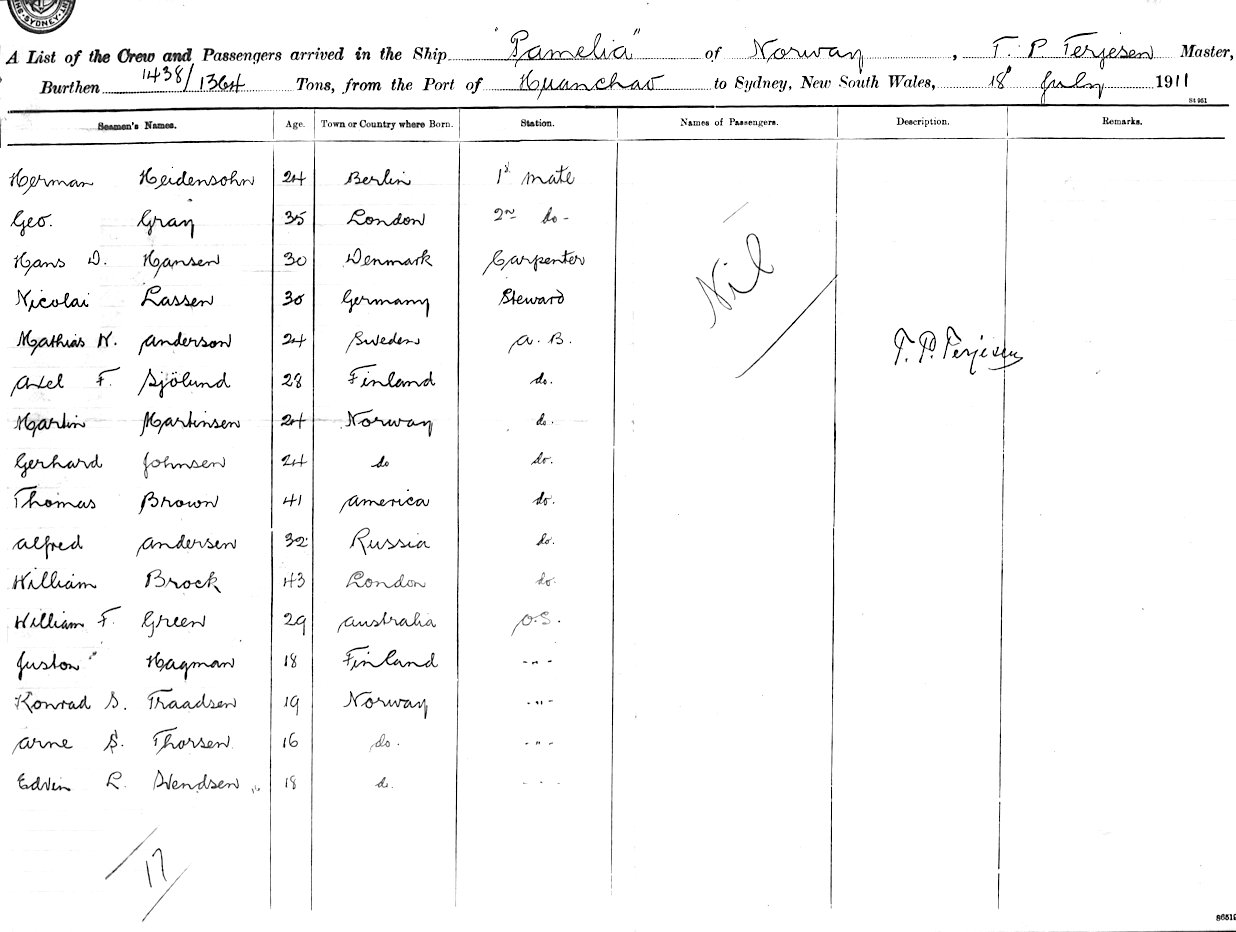 SYDNEY
A List of the Crew and Passengers arrived in the Ship "Pamelia" of Norway, T. P. Terjesen Master,
Burthen 1438/1364 Tons, from the Port of Huanchao to Sydney, New South Wales, 18th July 1911
St 951
Seamen's Names. Age. Town or Country where Born. Station. Names of Passengers. Description. Remarks.
Herman Heidensohn 24 Berlin 1st Mate
Geo. Gray 35 London 2nd do -
Hans D. Hansen 30 Denmark Carpenter
Nicolai Lassen 30 Germany Steward
Nil
Mathias N. Anderson 24 Sweden A. B.
T. P. Terjesen
Axel F. Sjölund 28 Finland do.
Martin Martinsen 24 Norway do.
Gerhard Johnsen 24 do do.
Thomas Brown 41 America do.
Alfred Andersen 32 Russia do.
William Brock 43 London do.
William F. Green 29 Australia O.S.
Juston Hagman 18 Finland -"-
Konrad S. Traadsen 19 Norway -"-
Arne S. Thorsen 16 do. -"-
Edvin L. Svendsen 18 d. - - -
17
86519